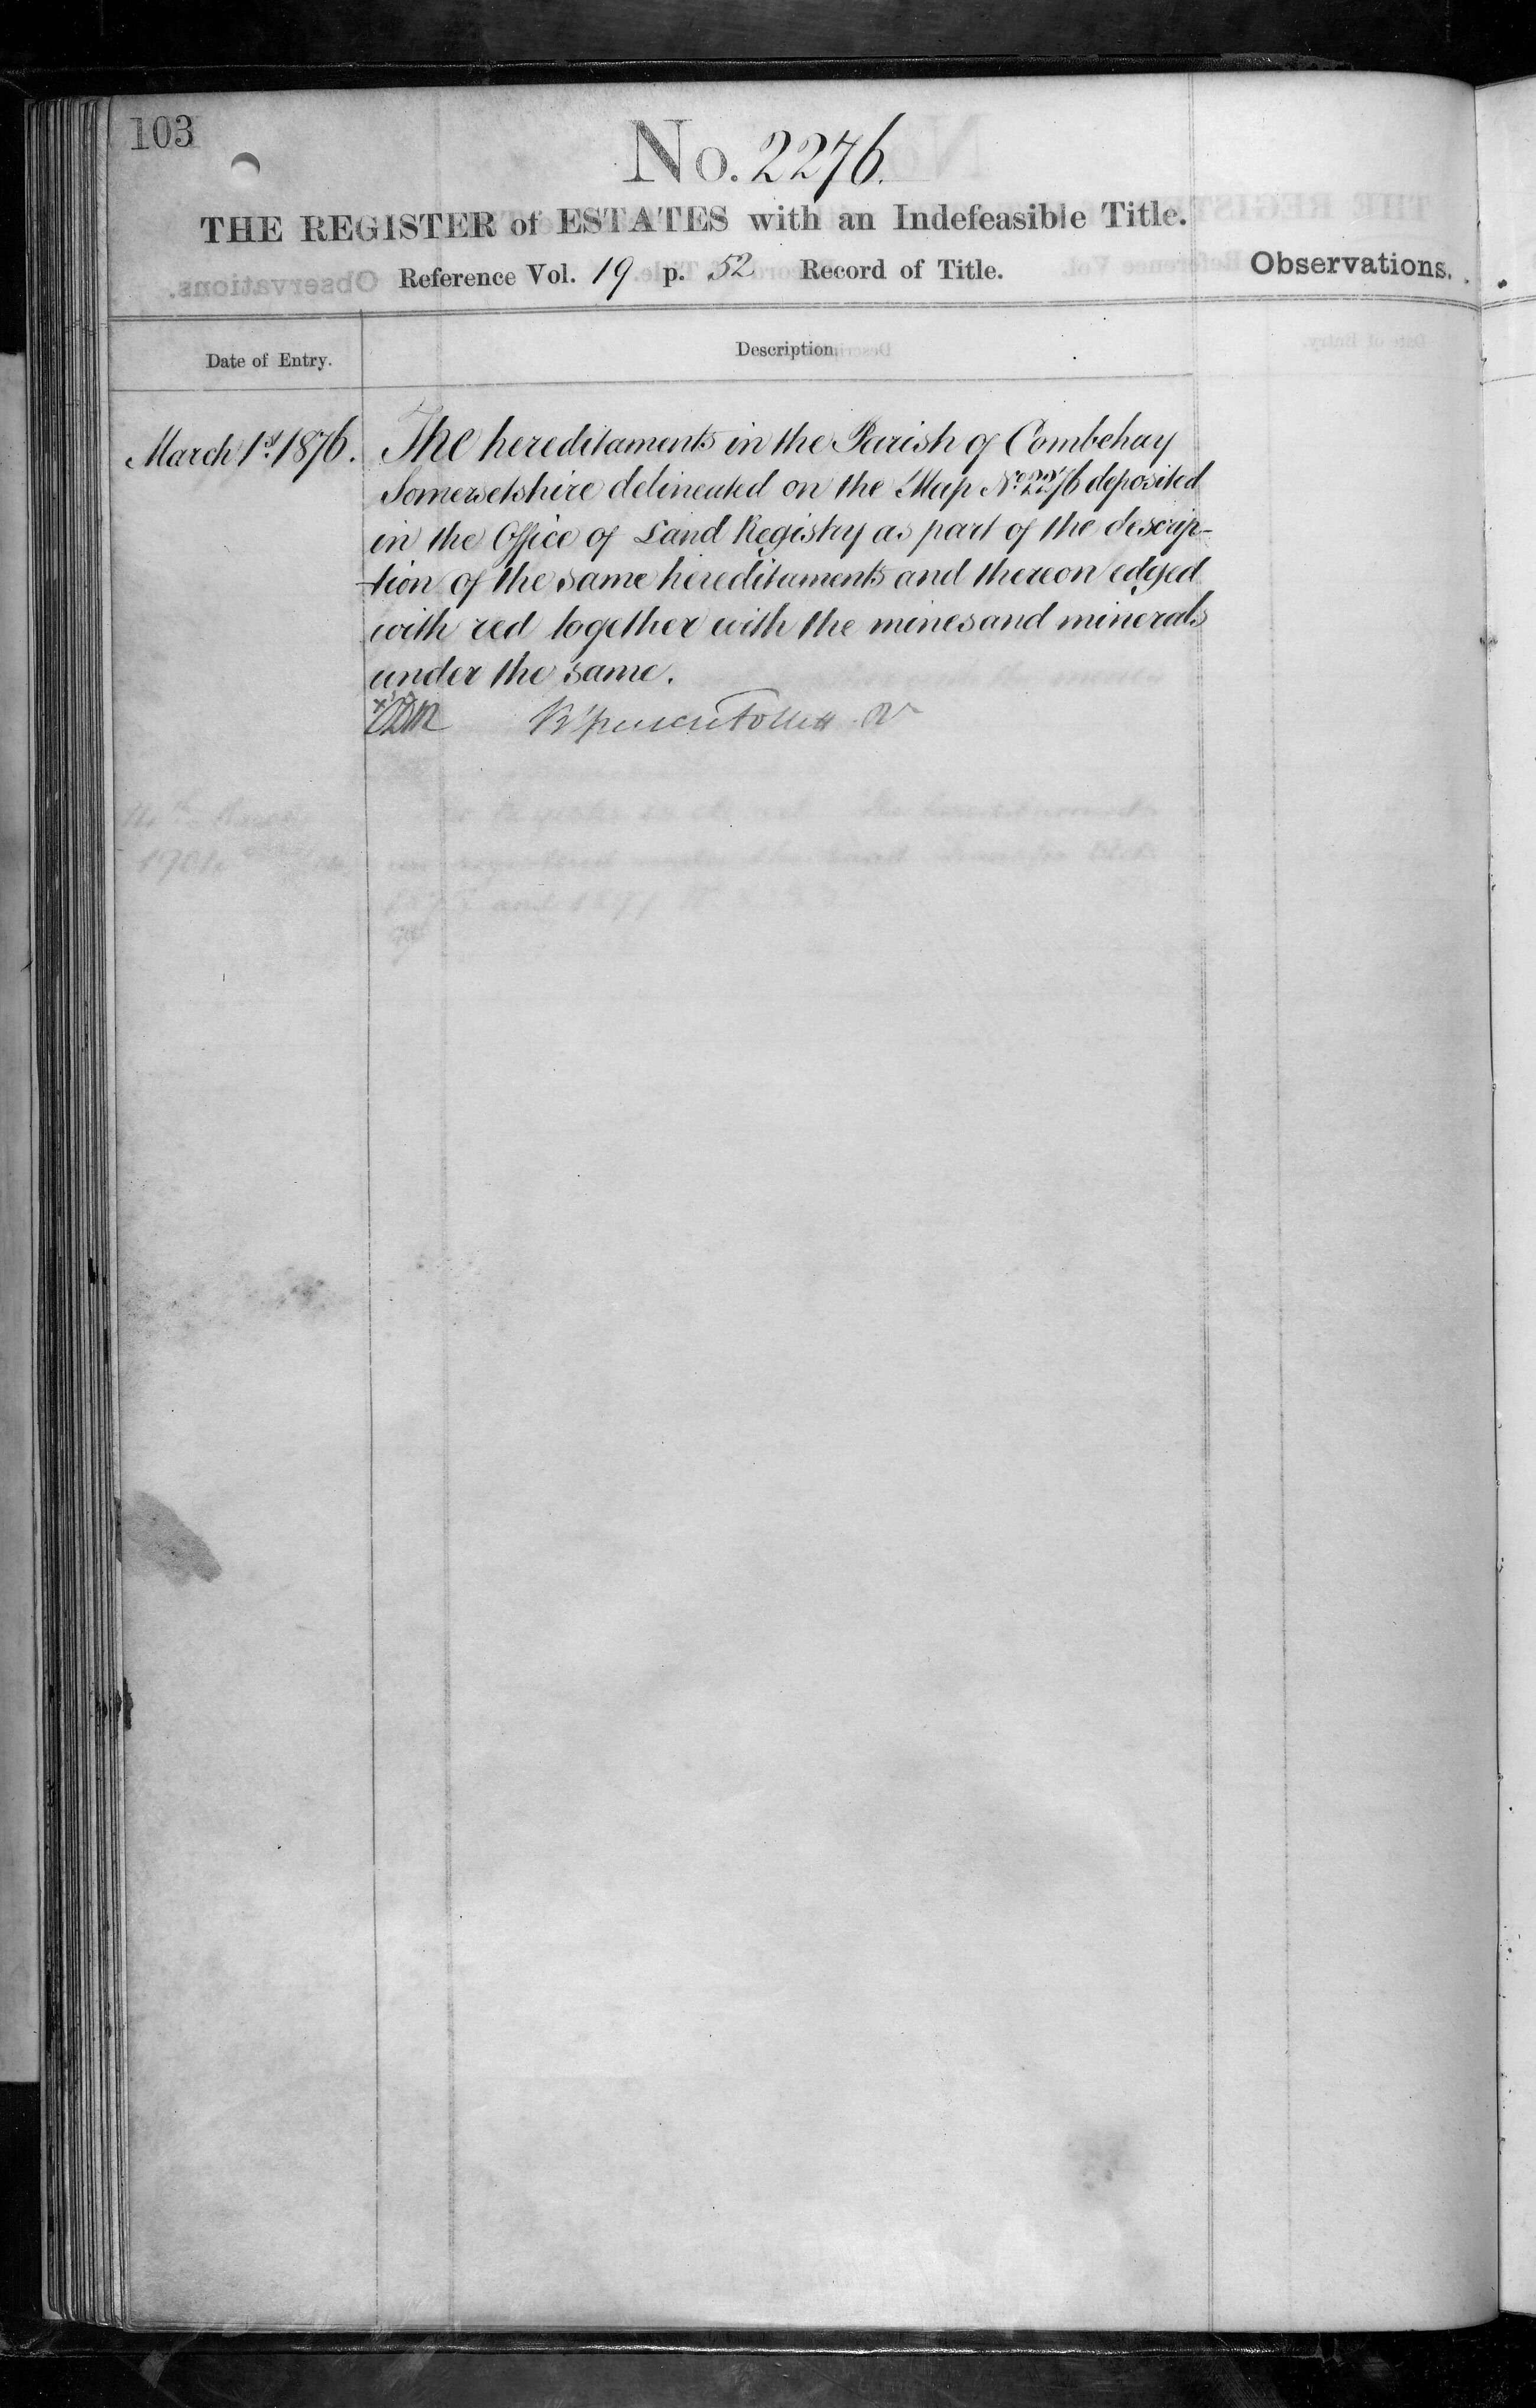 103
No. 2276.
THE REGISTER of ESTATES with an Indefeasible Title.
Reference Vol. 19 p. 52 Record of Title.
Observations.
Date of Entry.
Description.
March 1st 1876.
The hereditaments in the Parish of Combehay
Somersetshire delineated on the Map No. 2276 deposited
in the Office of Land Registry as part of the descrip-
tion of the same hereditaments and thereon edged
with red together with the mines and minerals
under the same.